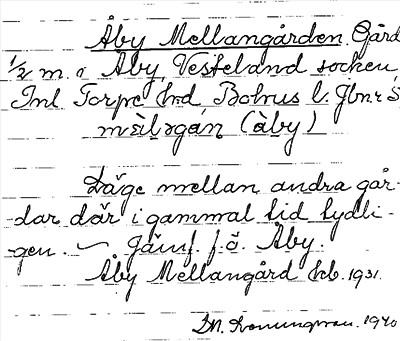 Åby Mellangården. Gård
1/2 m. i Åby, Vesteland socken,
Inl Torpe hd Bohus l. Jbnr 5
mèiləgán (àby)
Läge mellan andra går-
dar där i gammal tid tydli-
gen. — Jämf. f. ö. Åby.
Åby Mellangård hb. 1931.
1940